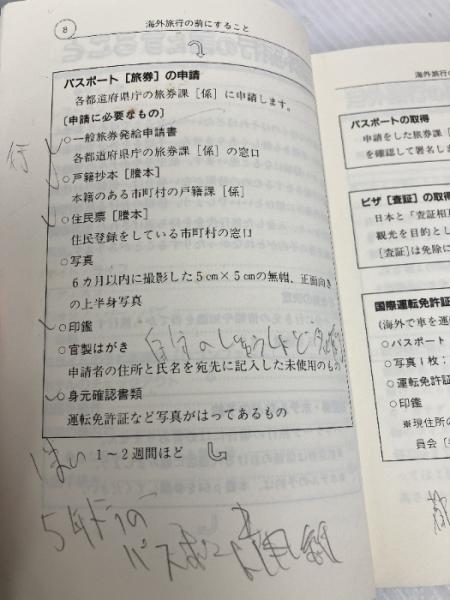 8
海外旅行の前にすること
パスポート［旅券］の申請
各都道府県庁の旅券課［係］に申請します。
［申請に必要なもの］
○一般旅券発給申請書
各都道府県庁の旅券課［係］の窓口
○戸籍抄本［謄本］
本籍のある市町村の戸籍課［係］
○住民票［謄本］
住民登録をしている市町村の窓口
○写真
6カ月以内に撮影した5cm×5cmの無帽、正面向き
の上半身写真
○印鑑
○官製はがき
申請者の住所と氏名を宛先に記入した未使用のもの
○身元確認書類
運転免許証など写真がはってあるもの
1～2週間ほど
はい
5年
パス
海外旅行の
パスポートの取得
申請をした旅券課［
を確認して署名しま
ビザ［査証］の取得
日本と「査証相
観光を目的とし
［査証］は免除に
国際運転免許証
（海外で車を運
○パスポート
○写真1枚；
○運転免許証
○印鑑
※現住所の
員会［